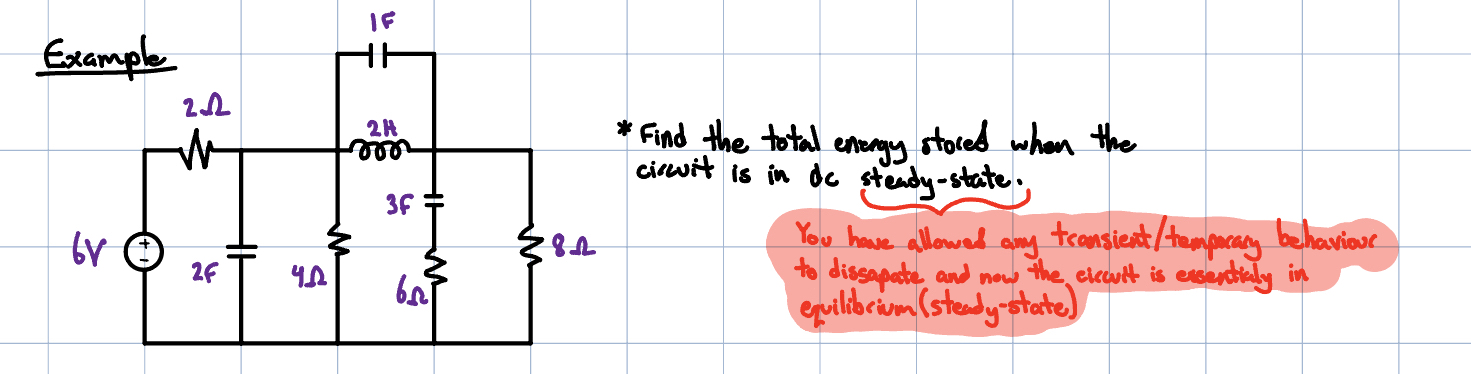 Example
1F
2Ω
2H
3F
6V
+
-
2F
4Ω
6Ω
8Ω
* Find the total energy stored when the
circuit is in dc steady-state.
You have allowed any transient/temporary behaviour
to dissapate and now the circuit is essentialy in
equilibrium (steady-state)